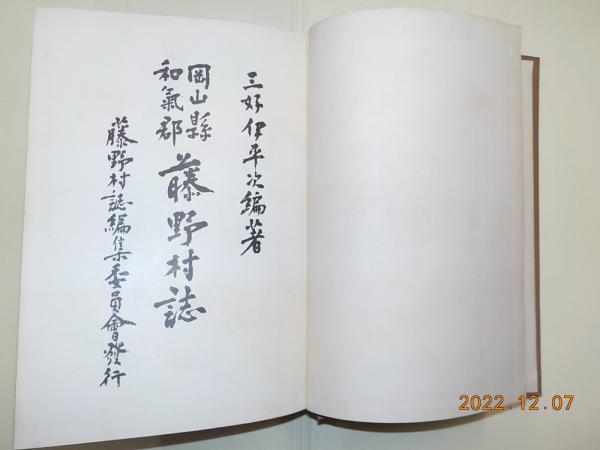 三好伊平次編著
岡山縣
和氣郡
藤野村誌
藤野村誌編集委員會發行
2022.12.07